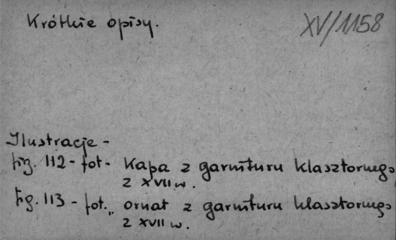 Krótkie opisy.
XV/1158
Ilustracje -
fig. 112 - fot. Kapa z garnituru klasztornego
z XVII w.
fig. 113 - fot. ornat z garnituru klasztornego
z XVII w.